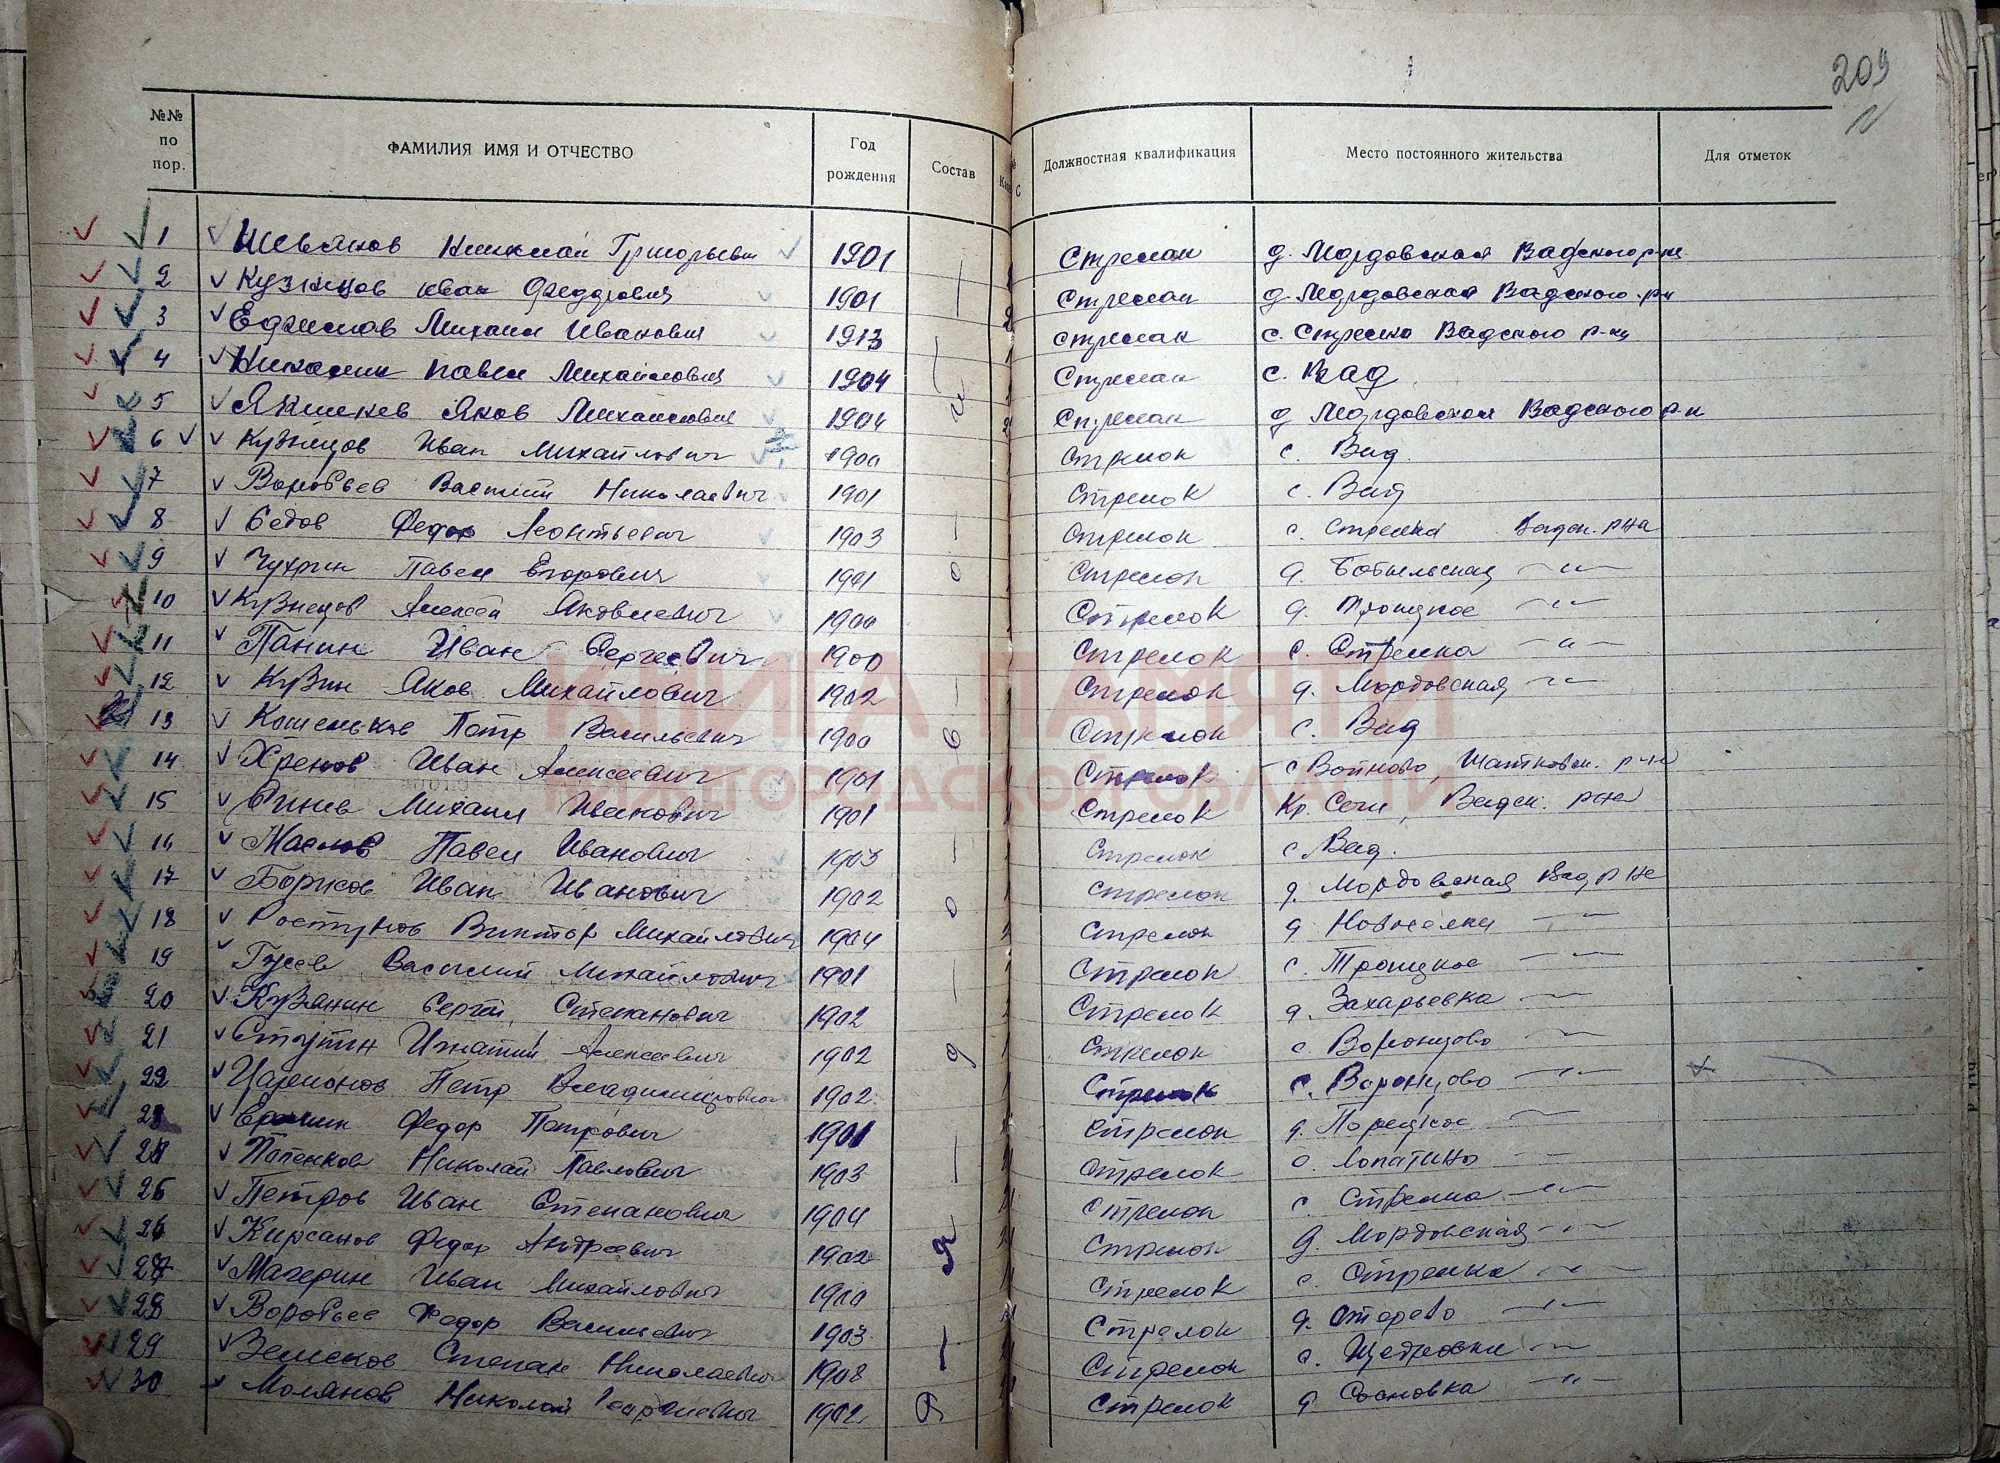 209
№№ по пор.
ФАМИЛИЯ ИМЯ И ОТЧЕСТВО
Год рождения
Состав
Должностная квалификация
Место постоянного жительства
Для отметок
1 Григорьевич 1901 Стрелок д. Мордовская Вадского р-на
2 Кузнецов Иван Федорович 1901 Стрелок д. Мордовская Вадского р-н
3 Михаил Иванович 1913 Стрелок с. Стрелка Вадского р-на
4 Павел Михайлович 1904 Стрелок с. Вад
5 Яков Михайлович 1904 Стрелок д Мордовская Вадского р-н
6 Кузнецов Иван Михайлович 1900 Стрелок с. Вад
7 Воробьев Василий Николаевич 1901 Стрелок с. Вад
8 Седов Федор Леонтьевич 1903 Стрелок с. Стрелка Вадск. р-на
9 Чухрин Павел Егорович 1901 Стрелок д. Бобыльская —"—
10 Кузнецов Алексей Яковлевич 1900 Стрелок д. Троицкое —"—
11 Панин Иван Сергеевич 1900 Стрелок с. Стрелка —"—
12 Кузин Яков Михайлович 1902 Стрелок д. Мордовская —"—
13 Кошельков Петр Васильевич 1900 Стрелок с. Вад
14 Хренов Иван Алексеевич 1901 Стрелок с Войново, Шатковск. р-на
15 Михаил Иванович 1901 Стрелок Кр. Сечи, Вадск. р-на
16 Маслов Павел Иванович 1903 Стрелок с Вад.
17 Борисов Иван Иванович 1902 Стрелок д. Мордовская Вад р-на
18 Ростунов Виктор Михайлович 1904 Стрелок д Новоселки —"—
19 Гусев Василий Михайлович 1901 Стрелок с. Троицкое —"—
20 Кузянин Сергей Степанович 1902 Стрелок д. Захарьевка —"—
21 Ступин Игнатий Алексеевич 1902 Стрелок с. Воронцово —"—
22 Петр Владимирович 1902 Стрелок с. Воронцово —"—
23 Федор Петрович 1901 Стрелок д.
24 Николай Павлович 1903 Стрелок с. Лопатино —"—
25 Петров Иван Степанович 1904 Стрелок с. Стрелка —"—
26 Кирсанов Федор Андреевич 1902 Стрелок д. Мордовская —"—
27 Материн Иван Михайлович 1900 Стрелок с. Стрелка —"—
28 Воробьев Федор Васильевич 1903 Стрелок д. —"—
29 Земсков Степан Николаевич 1908 Стрелок —"—
30 Молянов Николай 1902 Стрелок д Сосновка —"—
Рядовой
КНИГА ПАМЯТИ
НИЖЕГОРОДСКОЙ ОБЛАСТИ